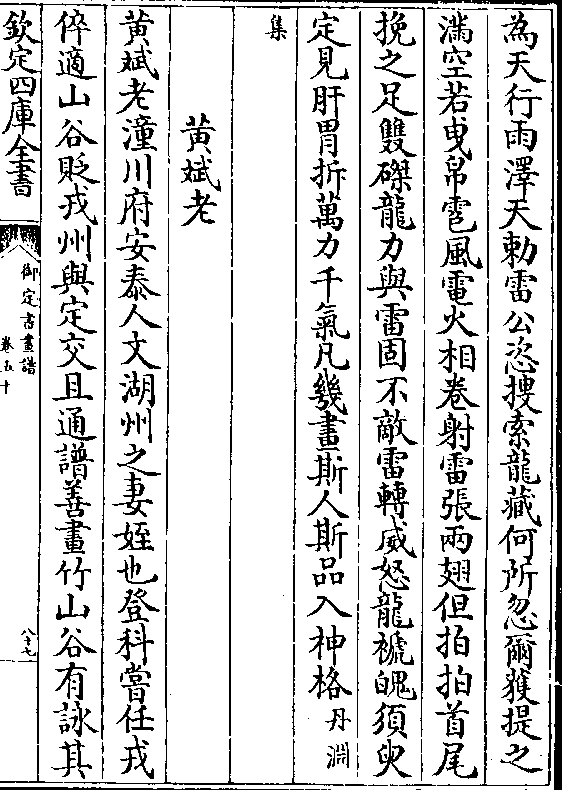 為天行雨澤天勅雷公恣搜索龍藏何所忽爾獲提之
滿空若曵帛雹風電火相卷射雷張兩翅但拍拍首尾
挽之足雙磔龍力與雷固不敵雷轉威怒龍褫魄須臾
定見肝胃折萬力千氣凡幾畫斯人斯品入神格丹淵
集
黃斌老
黃斌老潼川府安泰人文湖州之妻姪也登科嘗任戎
倅適山谷貶戎州與定交且通譜善畫竹山谷有詠其
欽定四庫全書
御定書畫譜
卷五十